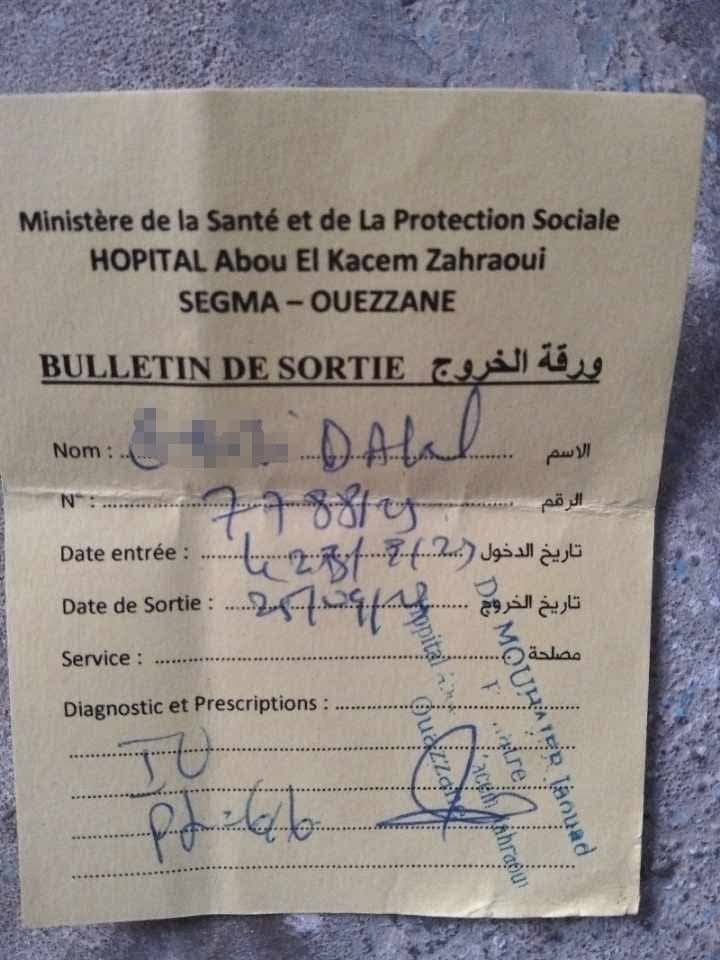 Ministère de la Santé et de La Protection Sociale
HOPITAL Abou El Kacem Zahraoui
SEGMA – OUEZZANE
BULLETIN DE SORTIE ورقة الخروج
Nom : DALAL الاسم
N° : 7788/2 الرقم
Date entrée : تاريخ الدخول
Date de Sortie : 25/09/ تاريخ الخروج
Service : مصلحة
Diagnostic et Prescriptions :
IU
Dr MOUHAJER Jaouad
Hopital Kacem Zahraoui
Ouazzane